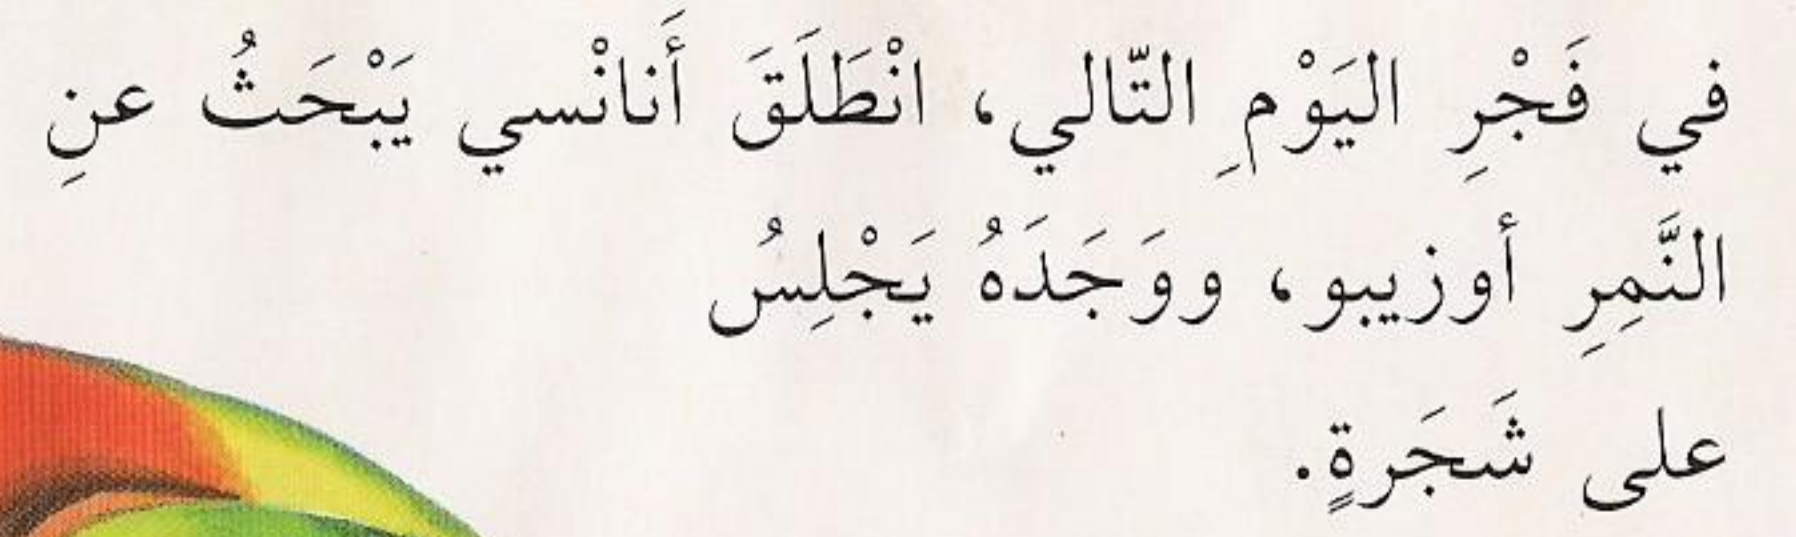 في فَجْرِ اليَوْمِ التّالي، انْطَلَقَ أَنانْسي يَبْحَثُ عنِ
النَّمِرِ أوزيبو، ووَجَدَهُ يَجْلِسُ
على شَجَرةٍ.